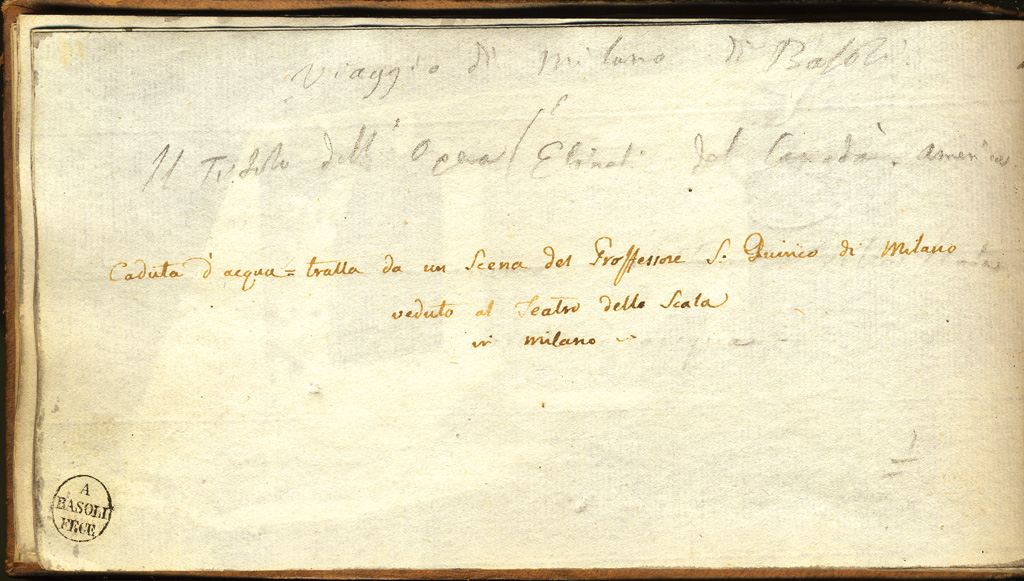 Viaggio di Milano di Basoli
Il Titolo dell' Opera È Elinati del Canada. America
Caduta d'acqua = tratta da un Scena del Proffessore S. Quirico di Milano
veduto al Teatro della Scala
in Milano
1
A
BASOLI
FECE